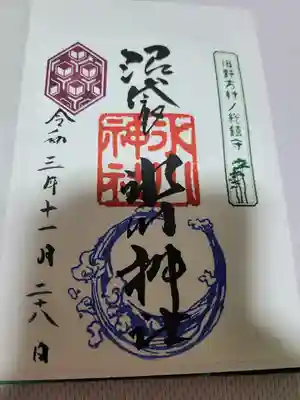 旧野方村ノ総鎮守
沼袋
氷川神社
氷川神社
令和三年十一月二十八日